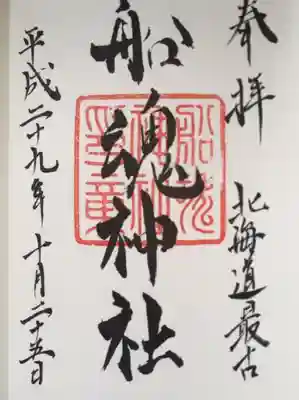 奉拝 北海道最古
船魂神社
平成二十九年十月二十五日